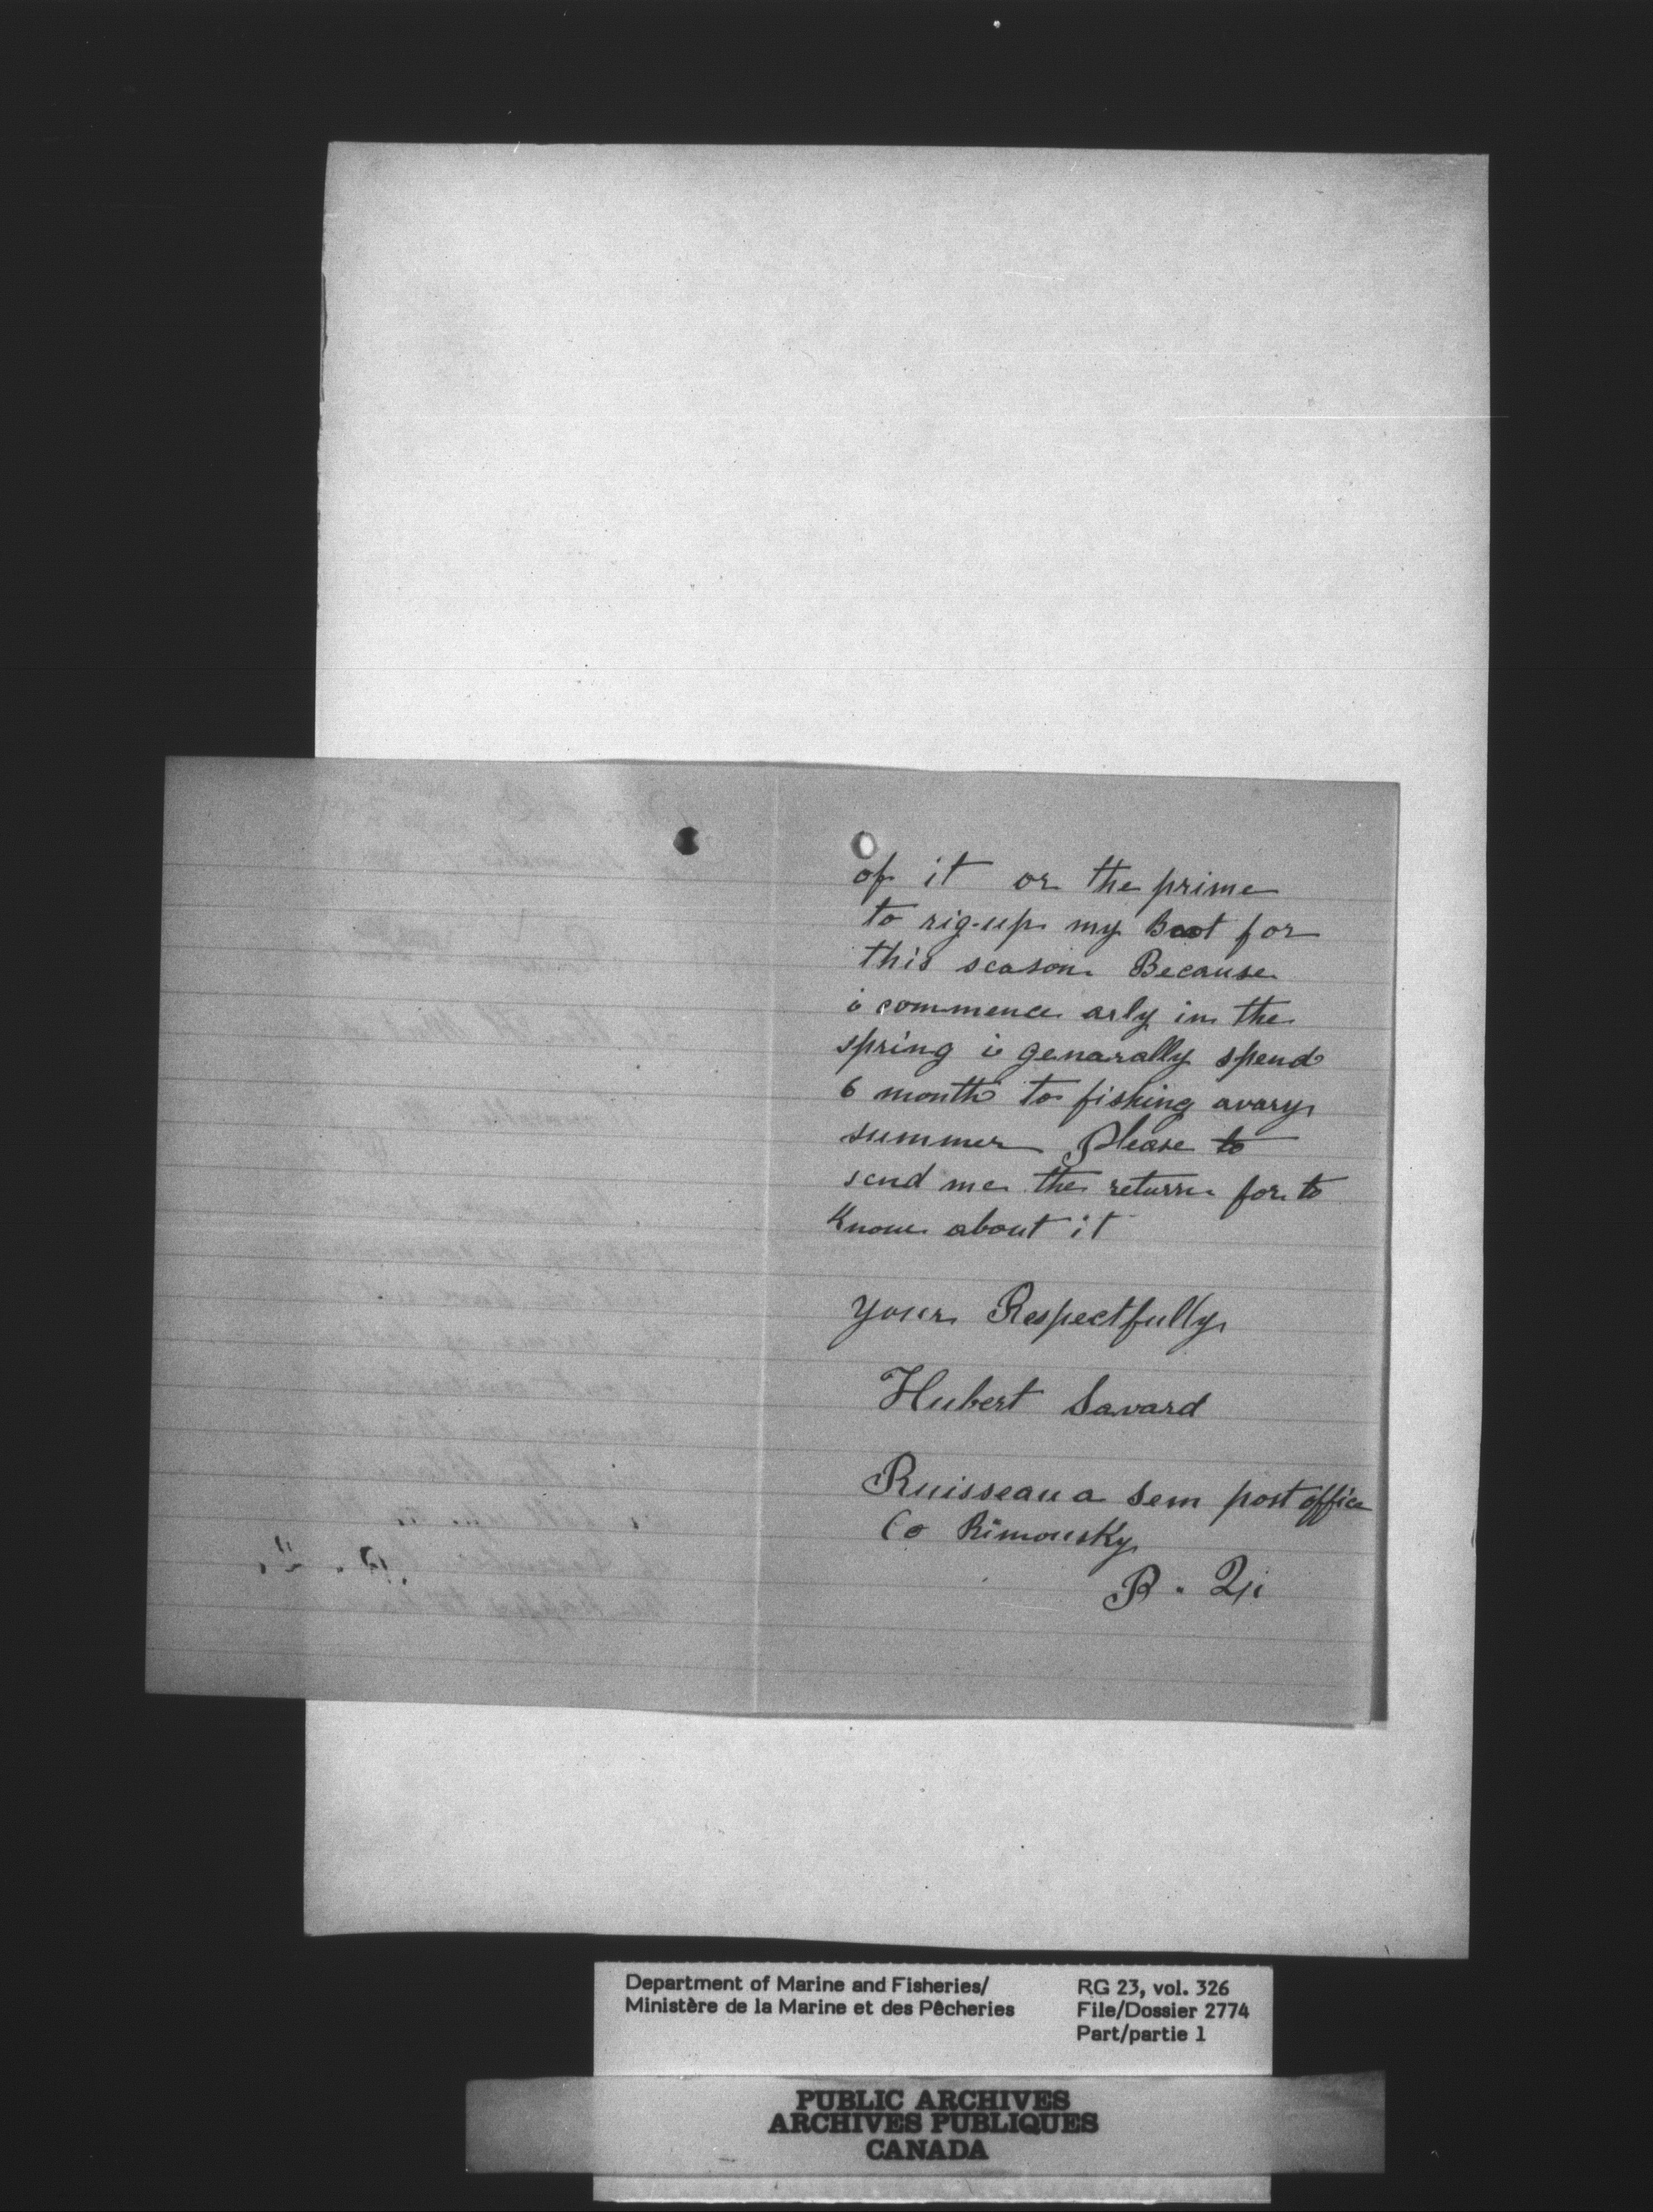 of it or the prime
to rig-up my Boot for
this season Because
i commence arly in the
spring i genarally spend
6 month to fishing avary
summer Please to
send me the return for to
Know about it
your Respectfully
Hubert Savard
Ruisseau a Sem post office
Co Rimousky
P. Q.
Department of Marine and Fisheries/
Ministère de la Marine et des Pêcheries
RG 23, vol. 326
File/Dossier 2774
Part/partie 1
PUBLIC ARCHIVES
ARCHIVES PUBLIQUES
CANADA